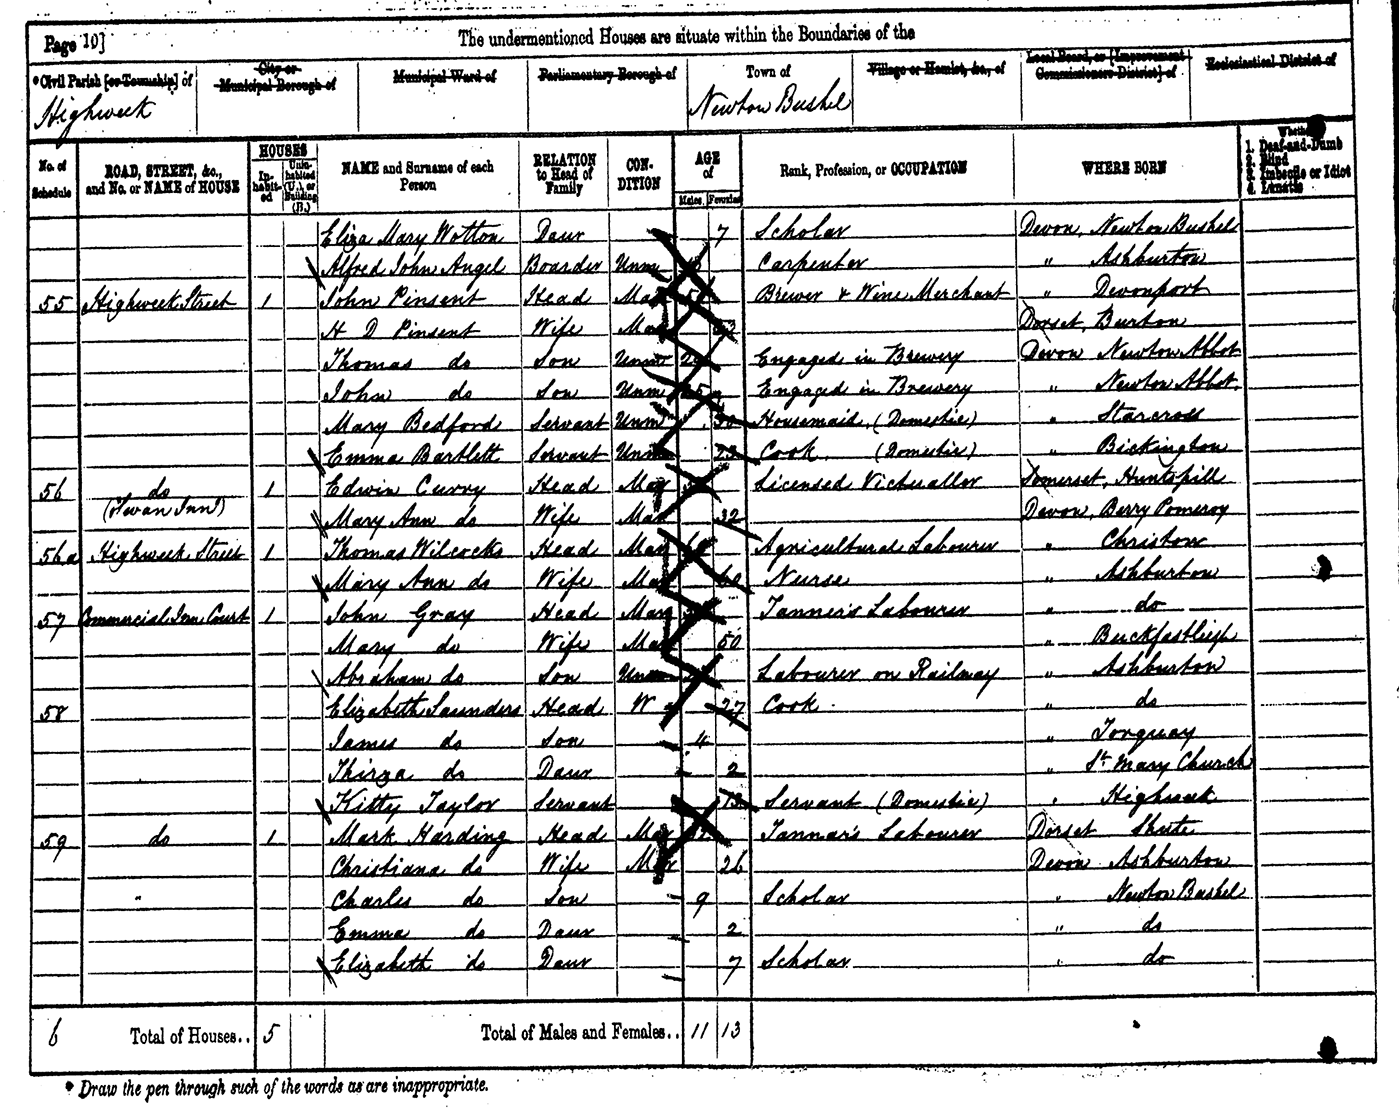 Page 10]
The undermentioned Houses are situate within the Boundaries of the
*Civil Parish [or Township] of
City or Municipal Borough of
Municipal Ward of
Parliamentary Borough of
Town of
Village or Hamlet, &c., of
Local Board, or [Improvement Commissioners District] of
Ecclesiastical District of
Highweek
Newton Bushel
No. of Schedule
ROAD, STREET, &c., and No. or NAME of HOUSE
HOUSES
Inhabited
Uninhabited (U.), or Building (B.)
NAME and Surname of each Person
RELATION to Head of Family
CONDITION
AGE of
Males
Females
Rank, Profession, or OCCUPATION
WHERE BORN
Whether
1. Deaf-and-Dumb
2. Blind
3. Imbecile or Idiot
4. Lunatic
Eliza Mary Wotton Daur 7 Scholar Devon, Newton Bushel
Alfred John Angel Boarder Unm Carpenter " Ashburton
55 Highweek Street 1 John Pinsent Head Mar Brewer & Wine Merchant " Devonport
H D Pinsent Wife Mar Dorset, Burton
Thomas do Son Unm Engaged in Brewery Devon Newton Abbot
John do Son Unm Engaged in Brewery " Newton Abbot
Mary Bedford Servant Unm 30 Housemaid, (Domestic) " Starcross
Emma Bartlett Servant Unm 23 Cook (Domestic) " Bickington
56 do (Swan Inn) 1 Edwin Curry Head Mar Licensed Victualler Somerset, Huntspill
Mary Ann do Wife Mar 32 Devon, Berry Pomeroy
56a Highweek Street 1 Thomas Wilcocks Head Mar Agricultural Labourer " Christow
Mary Ann do Wife Mar 60 Nurse " Ashburton
57 Commercial Inn Court 1 John Gray Head Mar Tanner's Labourer " do
Mary do Wife Mar 50 " Buckfastleigh
Abraham do Son Unm Labourer on Railway " Ashburton
58 Elizabeth Saunders Head W 27 Cook " do
James do Son 4 " Torquay
Thirza do Daur 2 " St Mary Church
Kitty Taylor Servant 13 Servant (Domestic) " Highweek
59 do 1 Mark Harding Head Mar Tannar's Labourer Dorset Shute
Christiana do Wife Mar 26 Devon Ashburton
" Charles do Son 9 Scholar " Newton Bushel
Emma do Daur 2 " do
Elizabeth do Daur 7 Scholar " do
6 Total of Houses.. 5 Total of Males and Females.. 11 13
* Draw the pen through such of the words as are inappropriate.